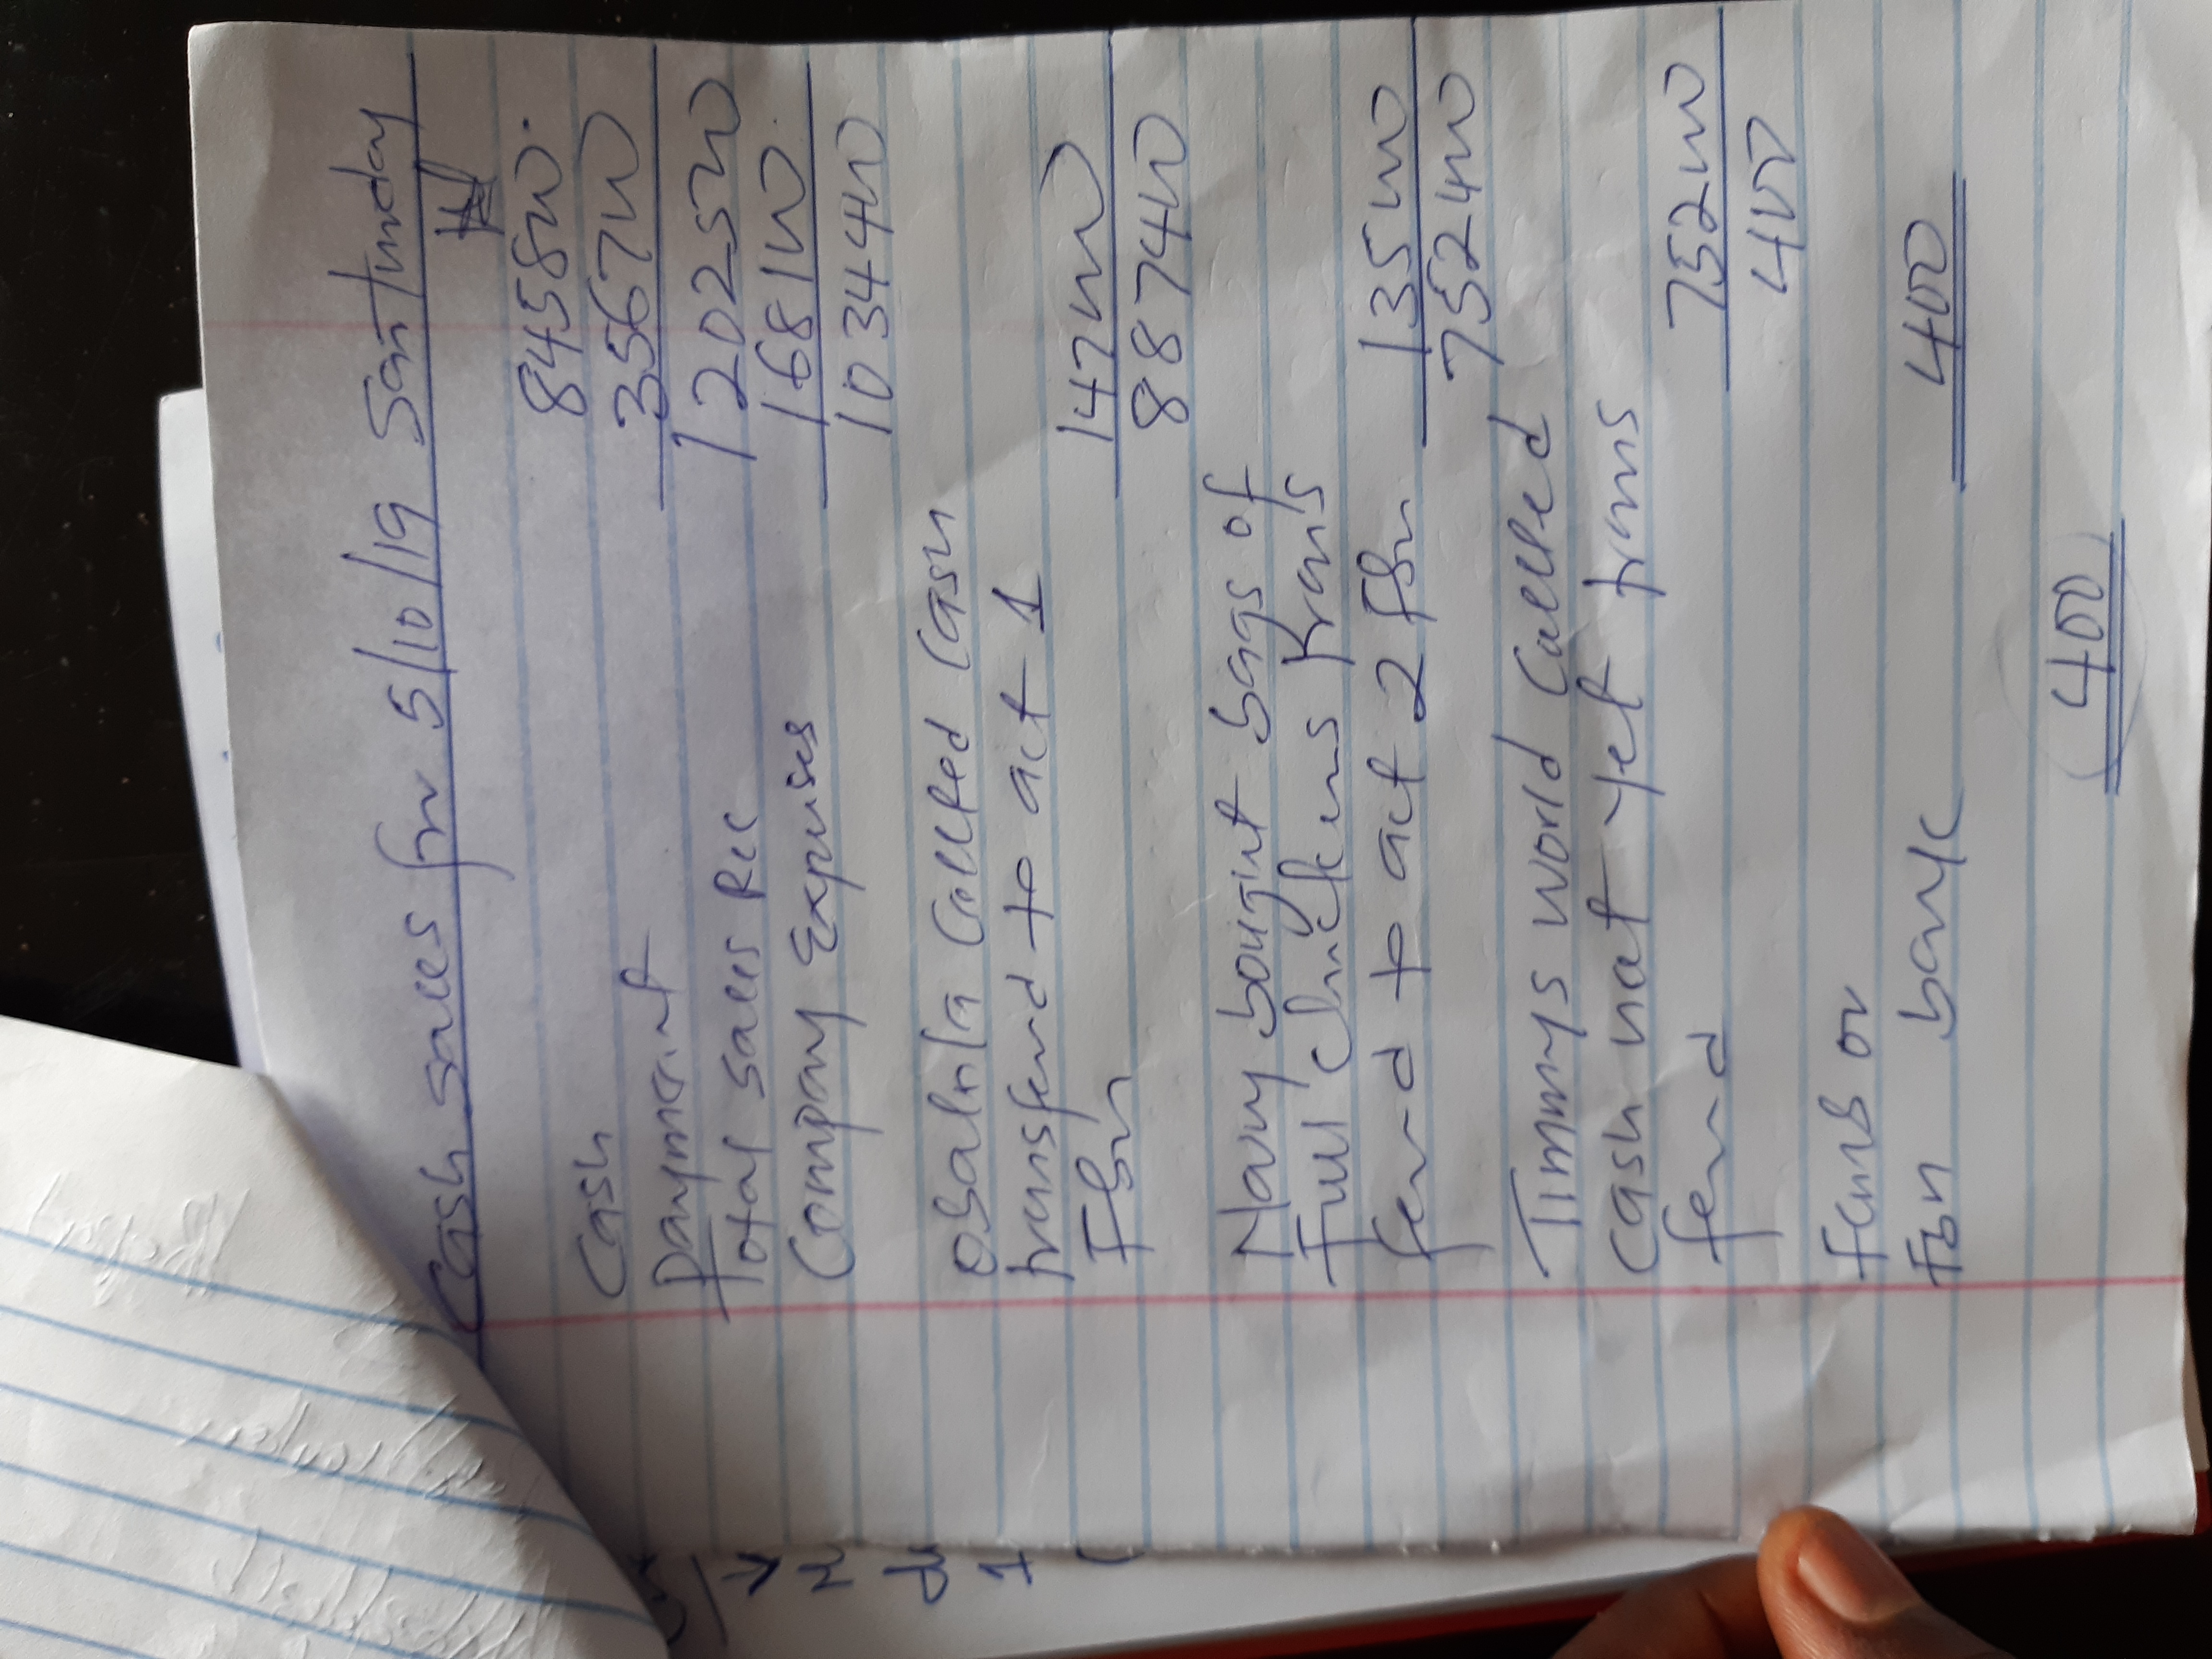 Cash sales for 5/10/19 Saturday
₦
Cash 845800
Payment 356700
Total sales Rec 1202500
Company Expenses 168100
1034400
Obalola Collted Cash
transferd to act 1
Fbn 147000
887400
Navy bought bags of
Full chickens trans
ferd to act 2 Fbn 135000
752400
Timmys world Collted
cash not yet trans
ferd 752000
400
or
Fbn bank 400
400